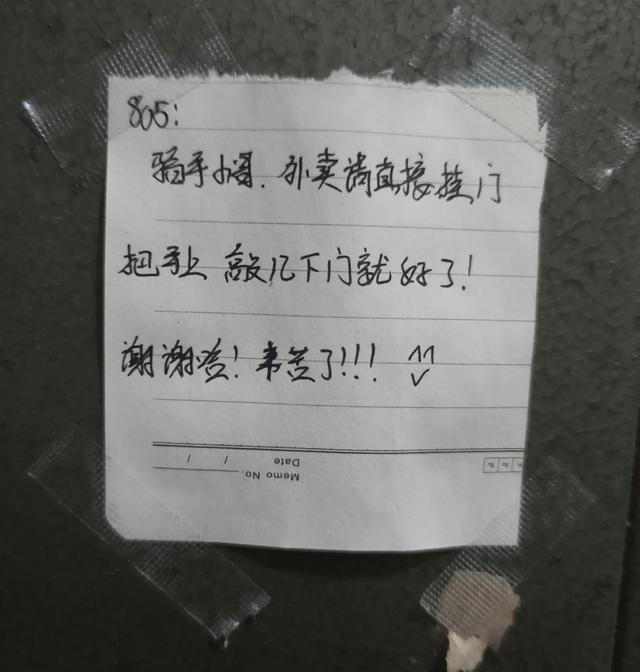 805:
骑手小哥. 外卖请直接挂门
把手上 敲几下门就好了!
谢谢啦! 辛苦了!!! ^^
Date / /
Memo No.